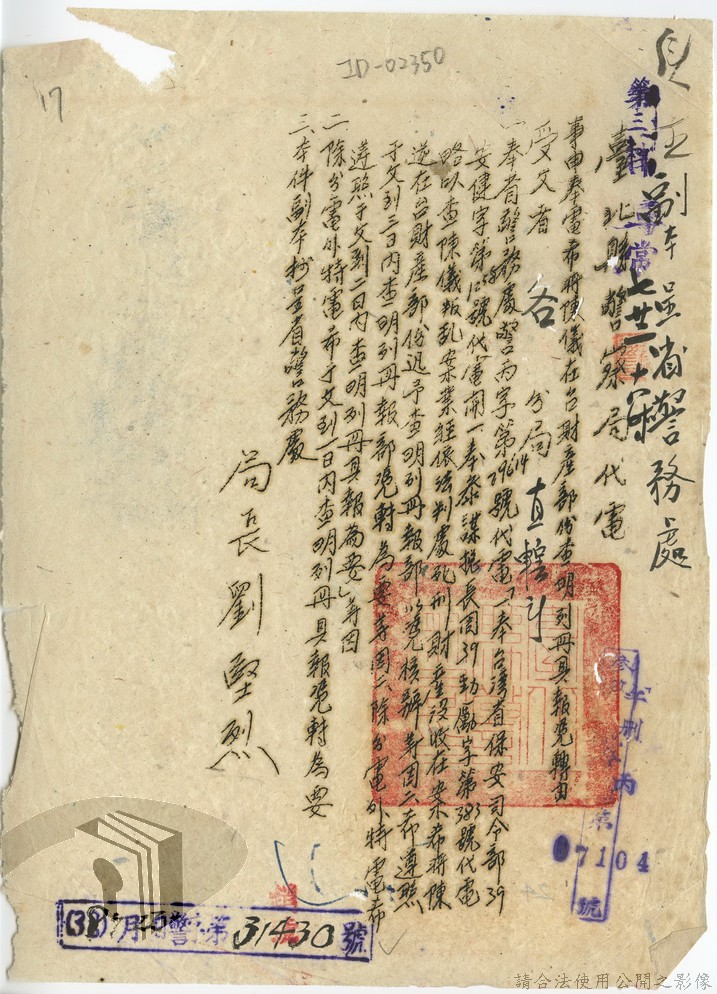 ID-02350
17
副本呈省警務處
臺北縣警察局代電
事由奉電希將陳儀在台財產部份查明列冊具報凭轉由
受文者 各分局 直轄
一奉省警務處警丙字第29614號代電「一奉台灣省保安司令部39
安健字第 號代電開一奉參謀總長周39勁勵字第383號代電
略以查陳儀叛乱案業經依法判處死刑財產沒收在案希將陳
逆在台財產部份迅予查明列冊報部以凭核辦等因二希遵照
于文到三日內查明列冊報部凭轉為要等因二除分電外特電希
遵照于文到二日內查明列冊具報為要」等因
二除分電外特電希于文到一日內查明列冊具報凭轉為要
三本件副本抄呈省警務處
局長劉堅烈
第
07104
號
月 警 第31430號
請合法使用公開之影像